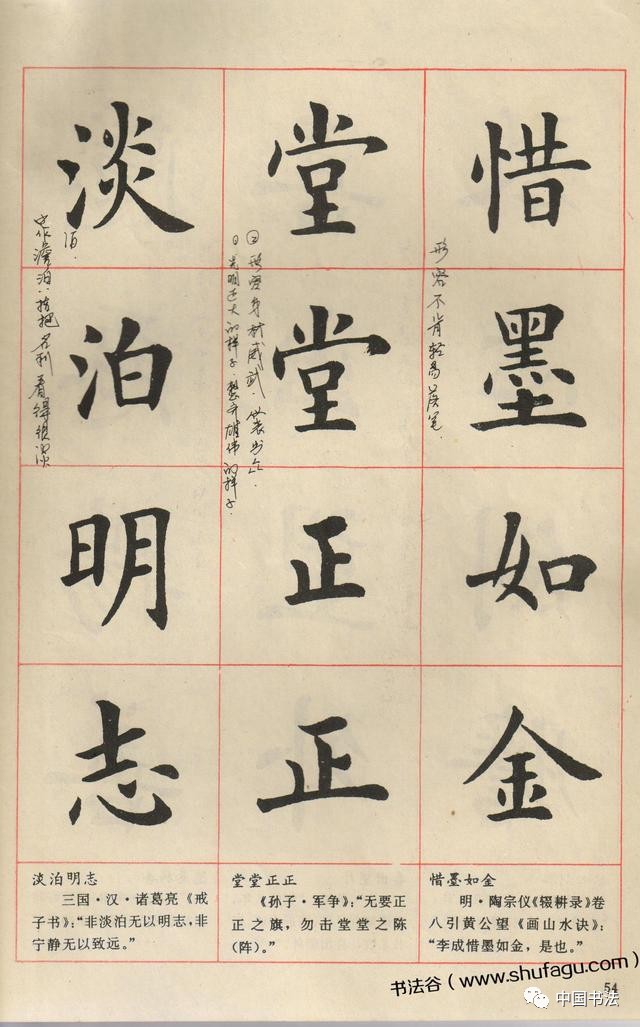 惜墨如金
形容不肯轻易落笔.
堂堂正正
②形容身材威武.仪表出众.
①光明正大的样子.整齐雄伟的样子.
淡泊明志
泊.
作澹泊:指把名利看得很淡
淡泊明志
三国·汉·诸葛亮《戒
子书》:“非淡泊无以明志,非
宁静无以致远。”
堂堂正正
《孙子·军争》:“无要正
正之旗，勿击堂堂之陈
(阵)。”
惜墨如金
明·陶宗仪《辍耕录》卷
八引黄公望《画山水诀》:
“李成惜墨如金，是也。”
54
书法谷（www.shufagu.com）
中国书法